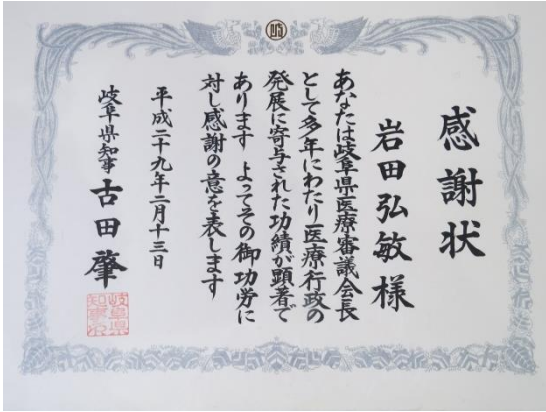 感謝状
岩田弘敏様
あなたは岐阜県医療審議会長
として多年にわたり医療行政の
発展に寄与された功績が顕著で
あります よってその御功労に
対し感謝の意を表します
平成二十九年二月十三日
岐阜県知事 古田肇
岐阜県
知事之印